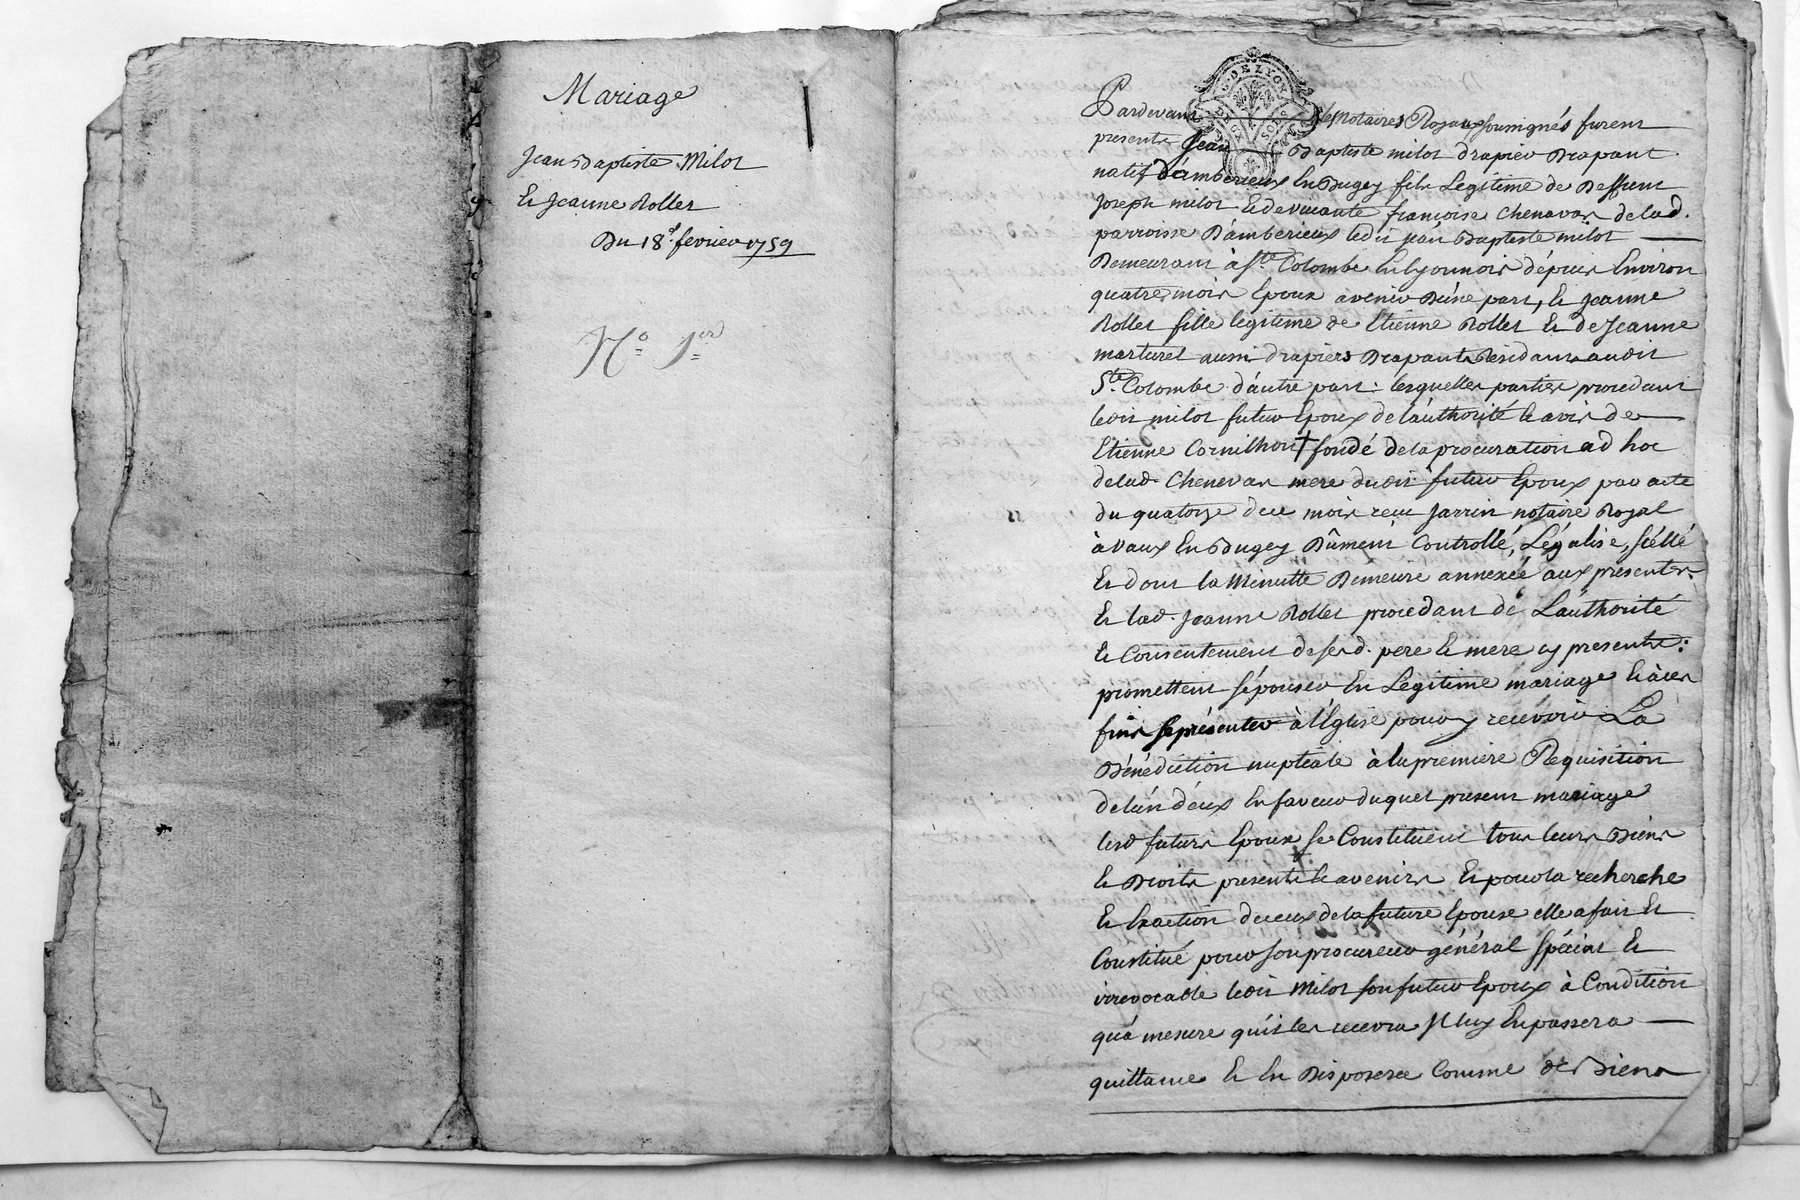 Mariage
Jean Baptiste Milot
Et Jeanne Rollet
Du 18e. fevrier 1759
No 1er
G. DE LYON
DEUX SOLS
Pardevant les Notaires Royaux soussignés furent
presents Jean Baptiste milot drapier Drapant
natif d'amberieux En Bugey fils Legitime de Deffunt
Joseph milot Et de vivante françoise chenavas de lad.
parroisse D'amberieux ledit jean Baptiste milot
Demeurant à Ste Colombe En lyonnois dépuis Environ
quatre mois Epoux avenir D'une part, Et Jeanne
Rollet fille legitime de Etienne Rollet Et de Jeanne
marturel aussi drapiers Drapants Residants audit
Ste Colombe d'autre part : lesquelles parties procedant
ledit milot futur Epoux de l'authorité Et avis de
Etienne Cornilhon + fondé de la procuration ad hoc
de lad. Chenevas mere dudit futur Epoux par acte
du quatorze de ce mois reçu Jarrin notaire Royal
à vaux En Bugey Dûment Controllé, Légalisé, scéllé
Et dont la Minutte Demeure annexée aux presentes
Et lad. Jeanne Rollet procedant de L'authorité
Et Consentement de sesd. pere Et mere cy presents :
promettent s'épouser En Légitime mariage Et à ces
fins se présenter à l'Eglise pour y recevoir La
Bénédiction nuptiale à la premiere Requisition
de l'un d'eux En faveur duquel present mariage
lesd futurs Epoux se Constituent tous leurs Biens
Et Droits presents Et avenirs Et pour la recherche
Et Exaction de ceux de la future Epouse elle a fait Et
Constitué pour son procureur général spécial Et
irrevocable ledit Milot son futur Epoux à Condition
qu'a mesure qu'il les recevra Il luy En passera
quittance Et En Disposera Comme de Biens